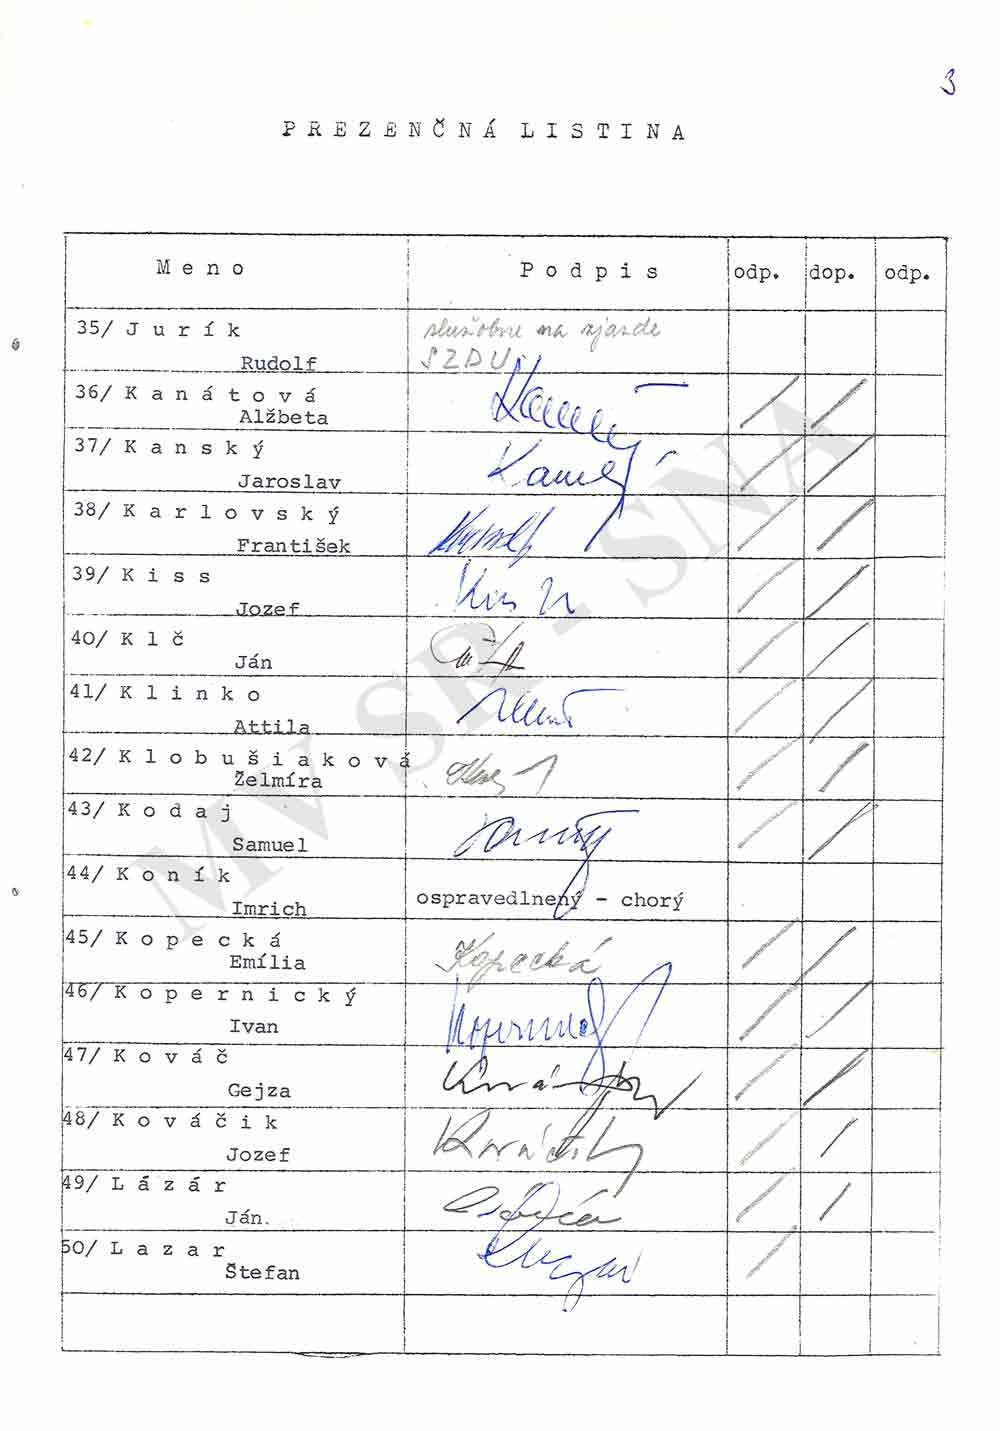 3
PREZENČNÁ LISTINA
Meno Podpis odp. dop. odp.
35/ Jurík
Rudolf
služobne na zjazde
SZDU
36/ Kanátová
Alžbeta
37/ Kanský
Jaroslav
38/ Karlovský
František
39/ Kiss
Jozef
40/ Klč
Ján
41/ Klinko
Attila
42/ Klobušiaková
Želmíra
43/ Kodaj
Samuel
44/ Koník
Imrich
ospravedlnený - chorý
45/ Kopecká
Emília
Kopecká
46/ Kopernický
Ivan
47/ Kováč
Gejza
48/ Kováčik
Jozef
49/ Lázár
Ján.
50/ Lazar
Štefan
MV SR - SNA